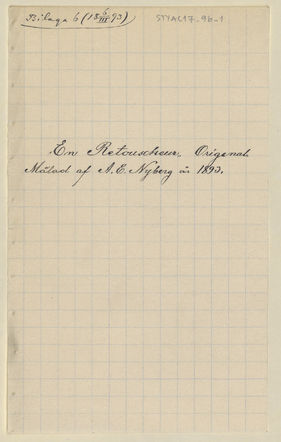 Bilaga 6 (18 6/III 93)
STYAC17-96-1
En Retouscheur, Original.
Målad af A. E. Nyberg år 1893.